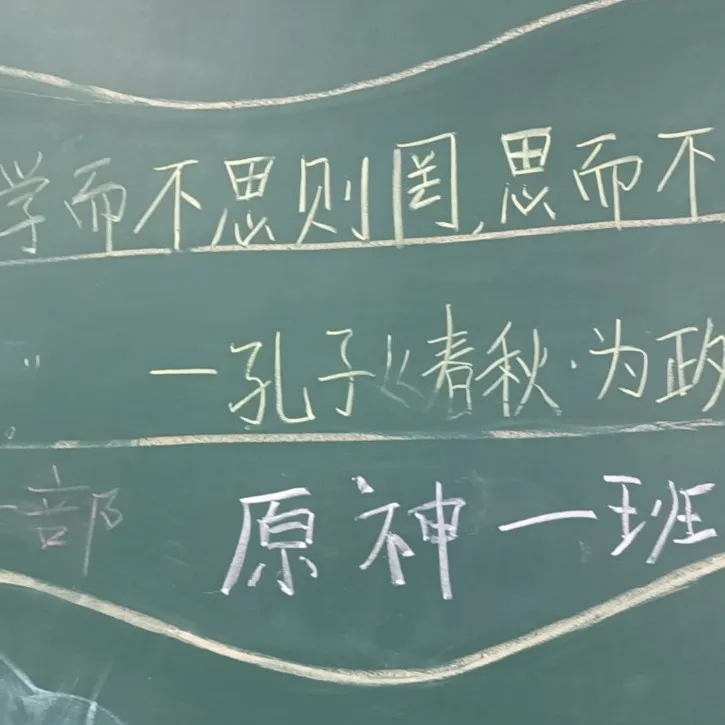 学而不思则罔,思而不
”
—孔子《春秋·为政
部 原神一班